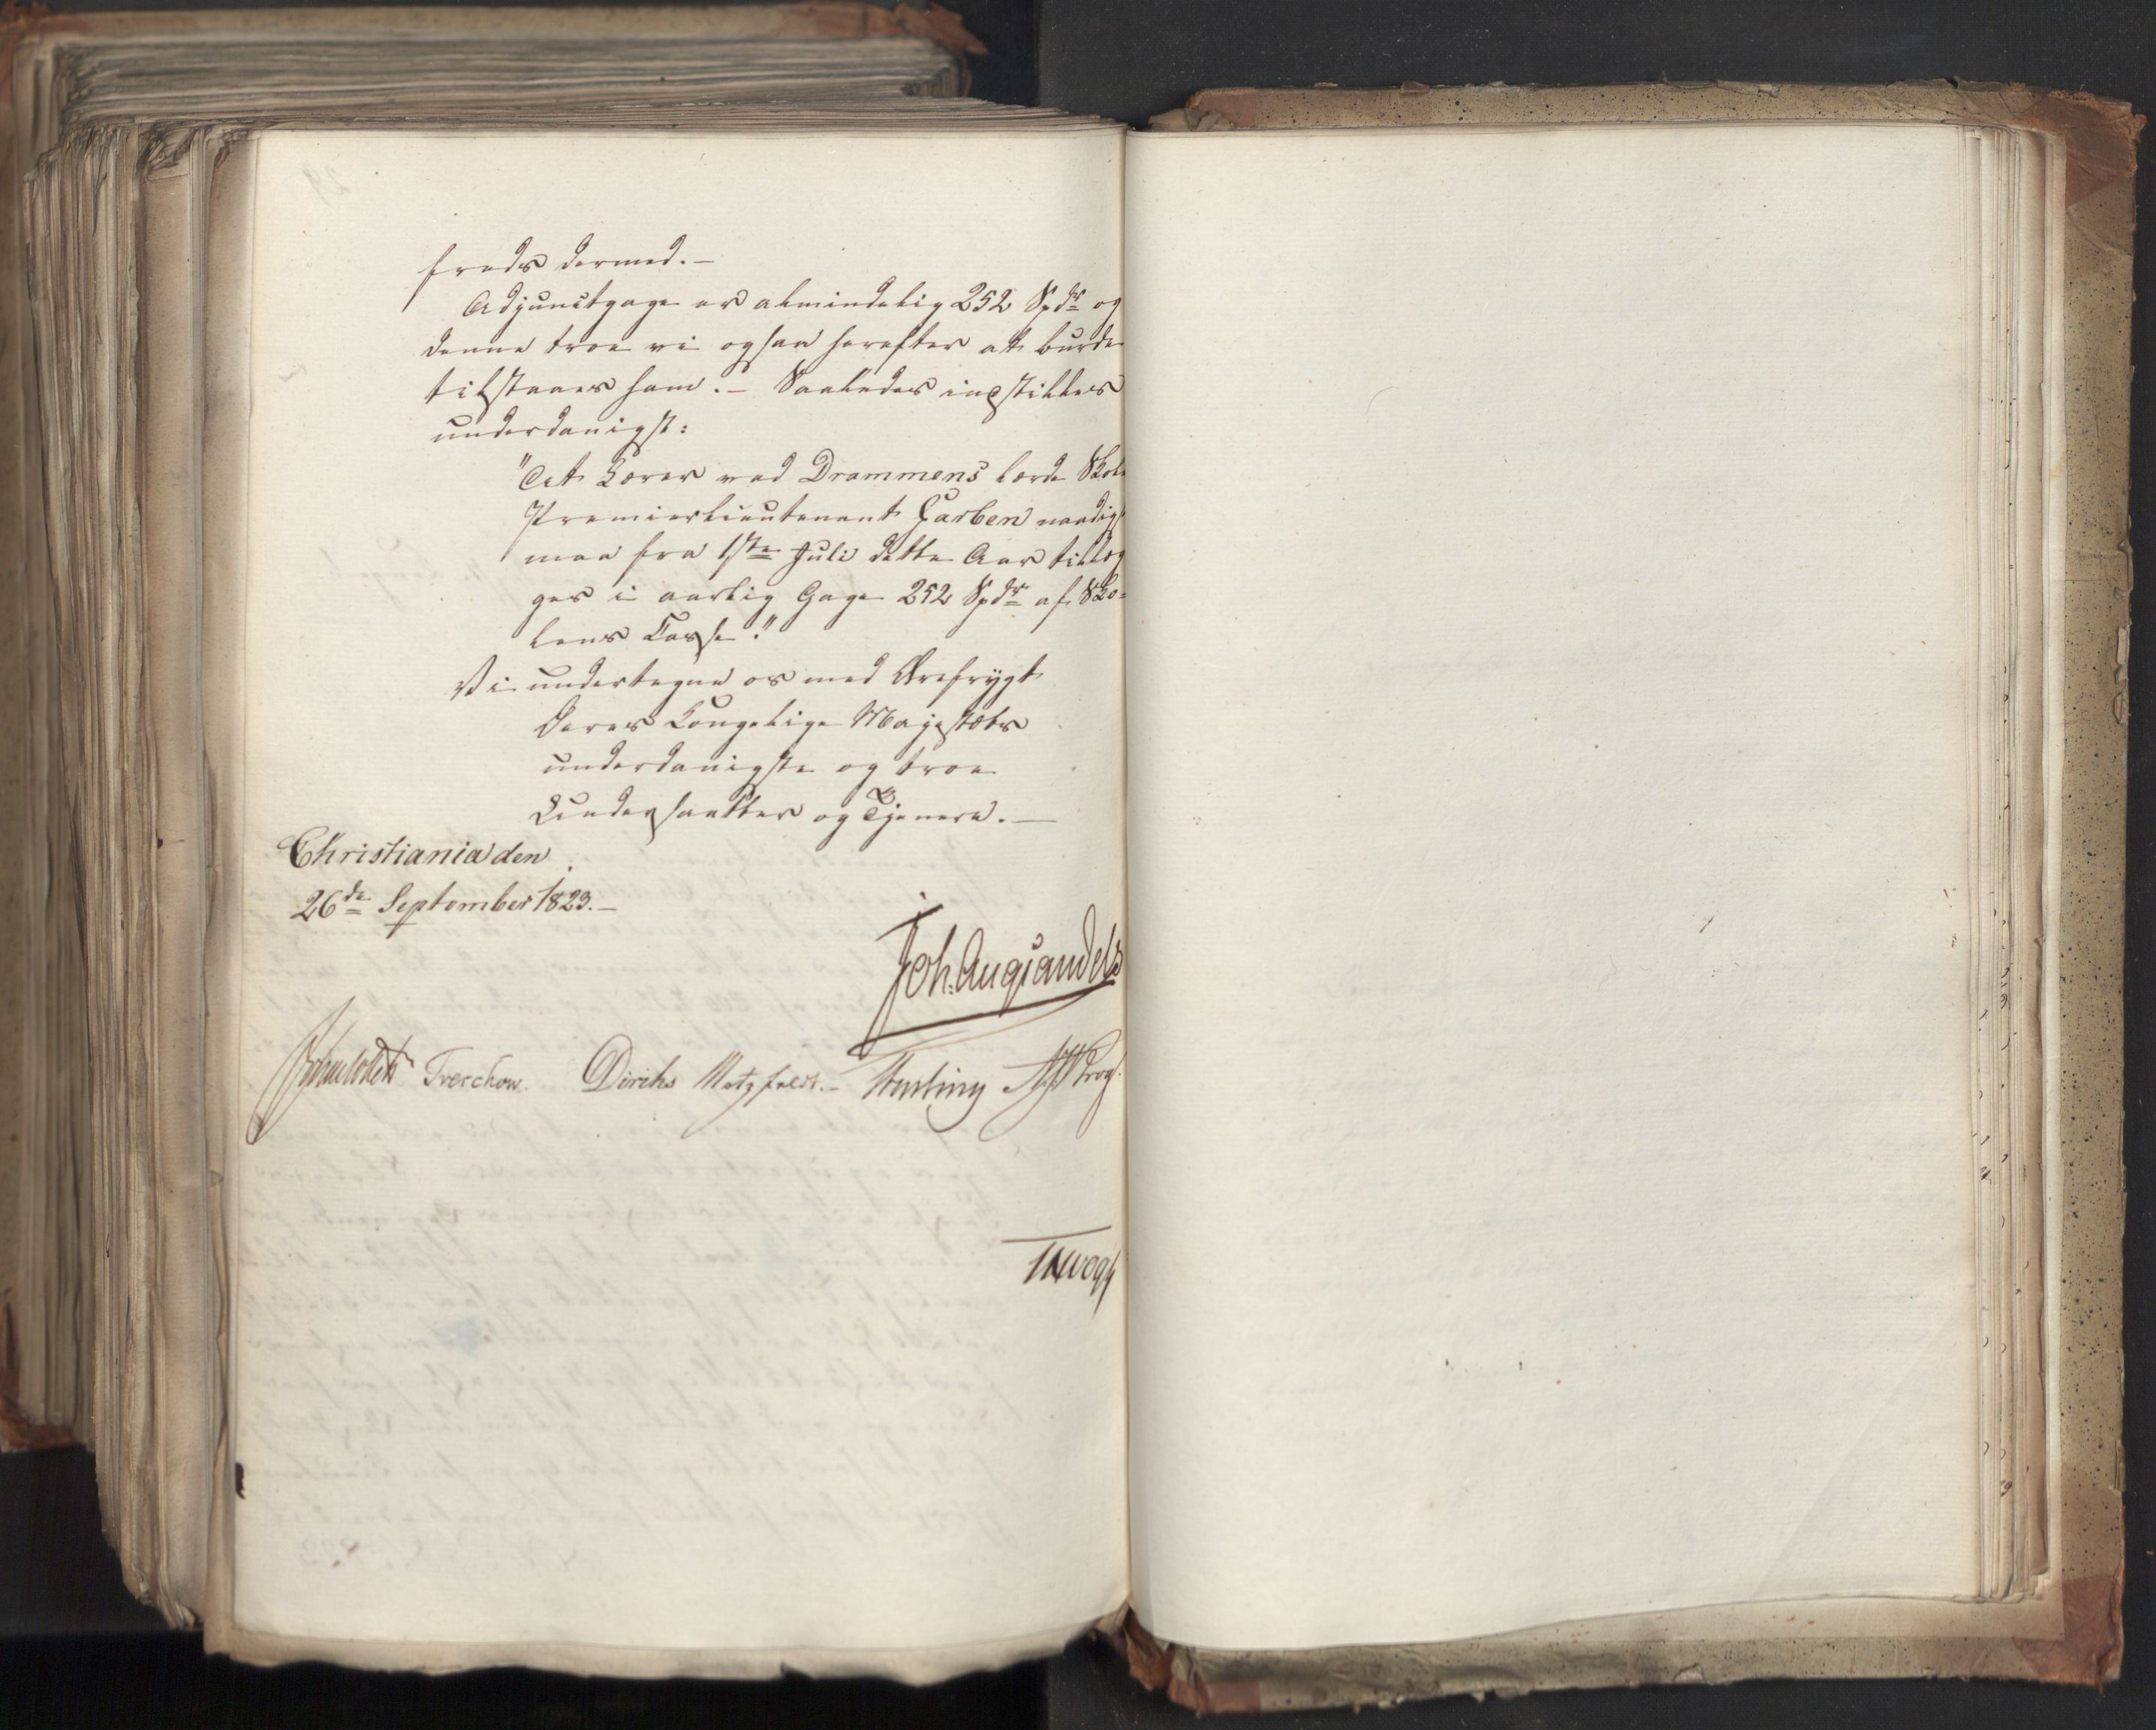 freds dermed.—
Adjunctgage er almindelig 252 Spdr og
denne troe vi ogsaa herefter at burde
tilstaaes ham.— Saaledes indstilles
underdanigst:
"At Lærer ved Drammens lærde Skole
Premierlieutenant Garben naadigst
maa fra 1ste Juli dette Aar tillæg
ges i aarlig Gage 252 Spdr af Sko=
lens Casse."
Vi undertegne os med Ærefrygt
Deres Kongelige Majestæts
underdanigste og troe
Undersaatter og Tjenere.—
Christiania den
26de September 1823.—
Joh: Aug Sandels
Treschow. Diriks Motzfeldt.— Krog.